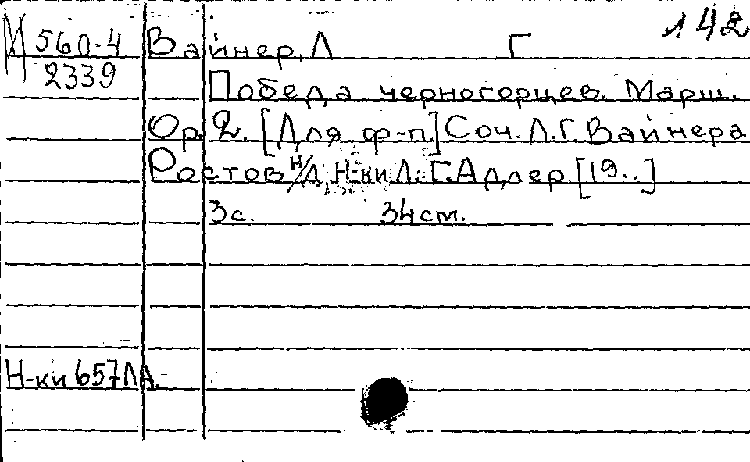 л 42
М 560-4 Вайнер, Л Г
2339
Победа черногорцев. Марш.
Ор. 2. [Для ф-п.] Соч. Л. Г. Вайнера
Ростов н/Д, Н-ки Л. Г. Адлер [19..]
3 с. 34 ст.
Н-ки 657 ЛА.